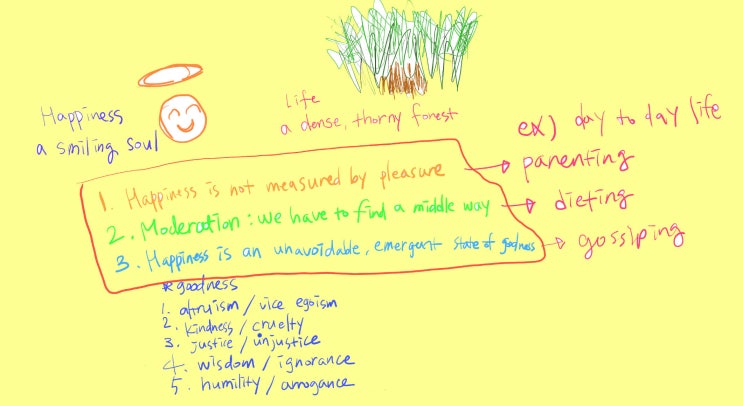 Happiness
a smiling soul
Life
a dense, thorny forest
ex) day to day life
1. Happiness is not measured by pleasure → parenting
2. Moderation: we have to find a middle way → dieting
3. Happiness is an unavoidable, emergent state of goodness → gossiping
*goodness
1. altruism / vice egoism
2. kindness / cruelty
3. justice / unjustice
4. wisdom / ignorance
5. humility / arrogance